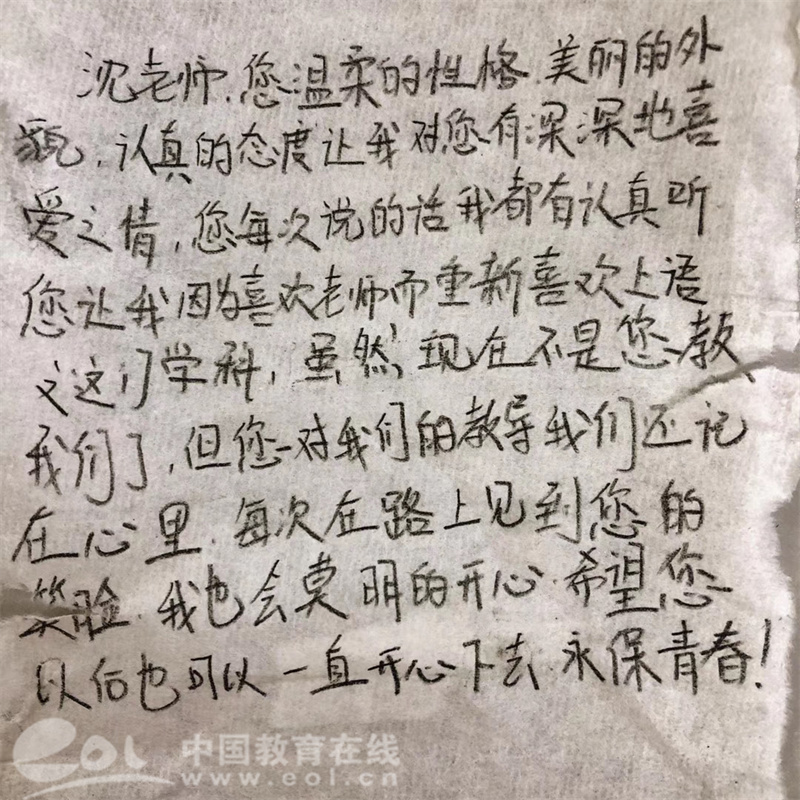 沈老师,您温柔的性格,美丽的外
貌,认真的态度让我对您有深深地喜
爱之情,您每次说的话我都有认真听
您让我因为喜欢老师而重新喜欢上语
文这门学科,虽然,现在不是您教
我们了,但您对我们的教导我们还记
在心里,每次在路上见到您的
笑脸,我也会莫明的开心.希望您
以后也可以一直开心下去,永保青春!
eol 中国教育在线
www.eol.cn